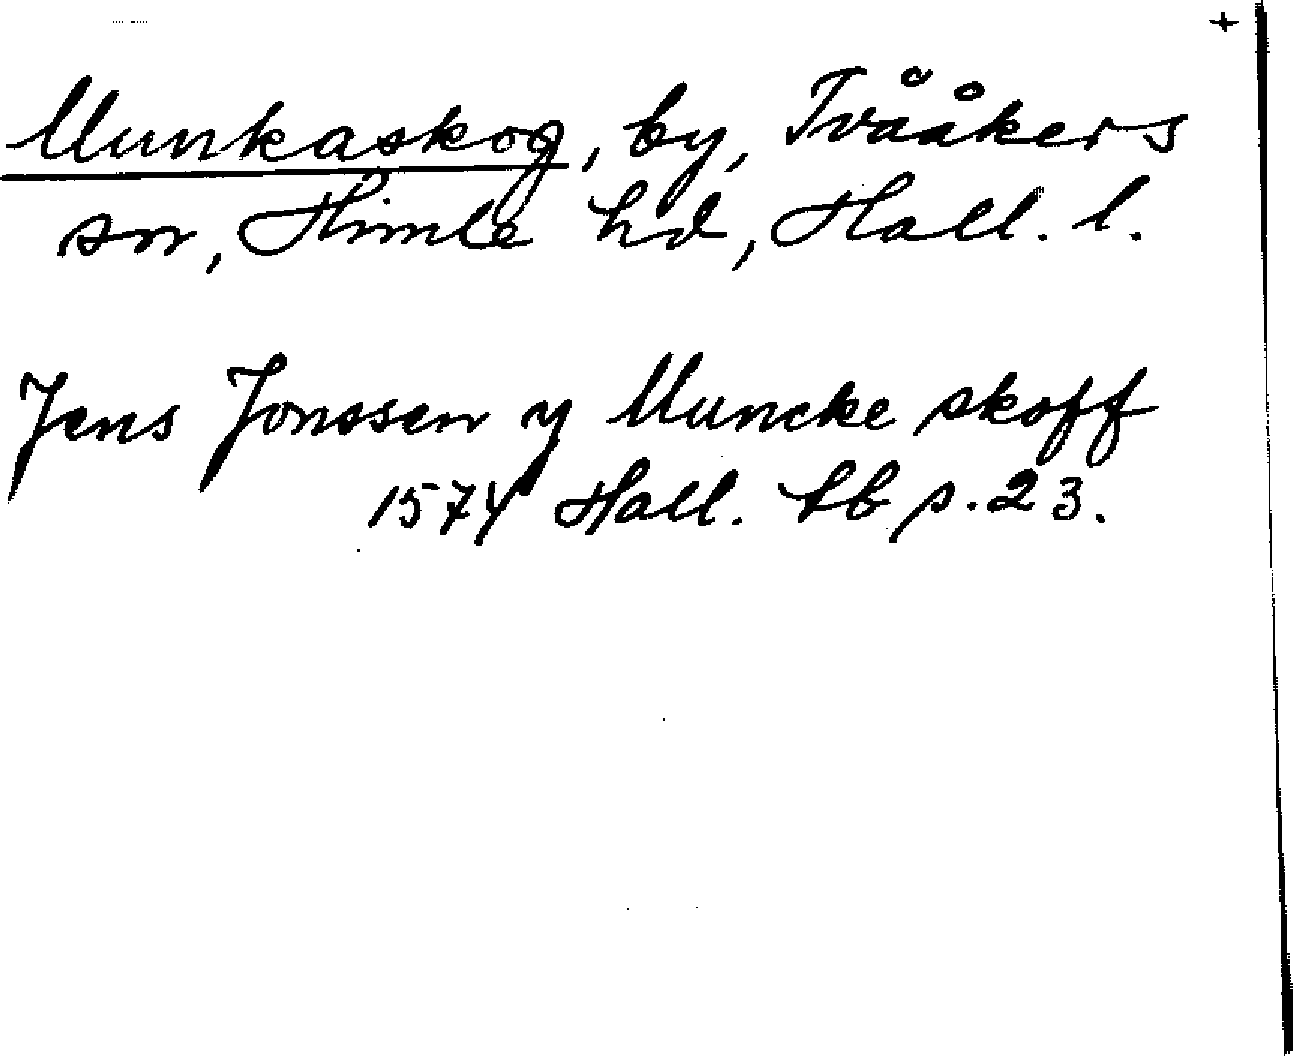 +
Munkaskog, by, Tvååkers
sn, Himle hd, Hall. l.
Jens Jonssen y Muncke skoff
1574 Hall. lb p. 23.